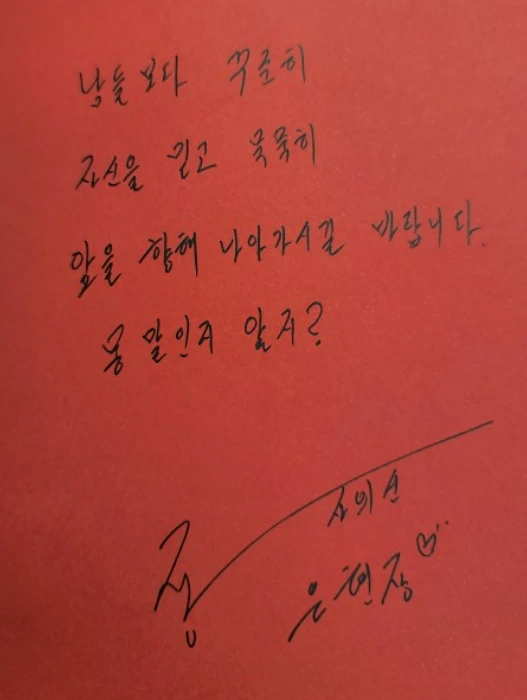 남들보다 꾸준히
자신을 믿고 묵묵히
앞을 향해 나아가시길 바랍니다.
뭔 말인지 알지?
장
사의 신
은현장